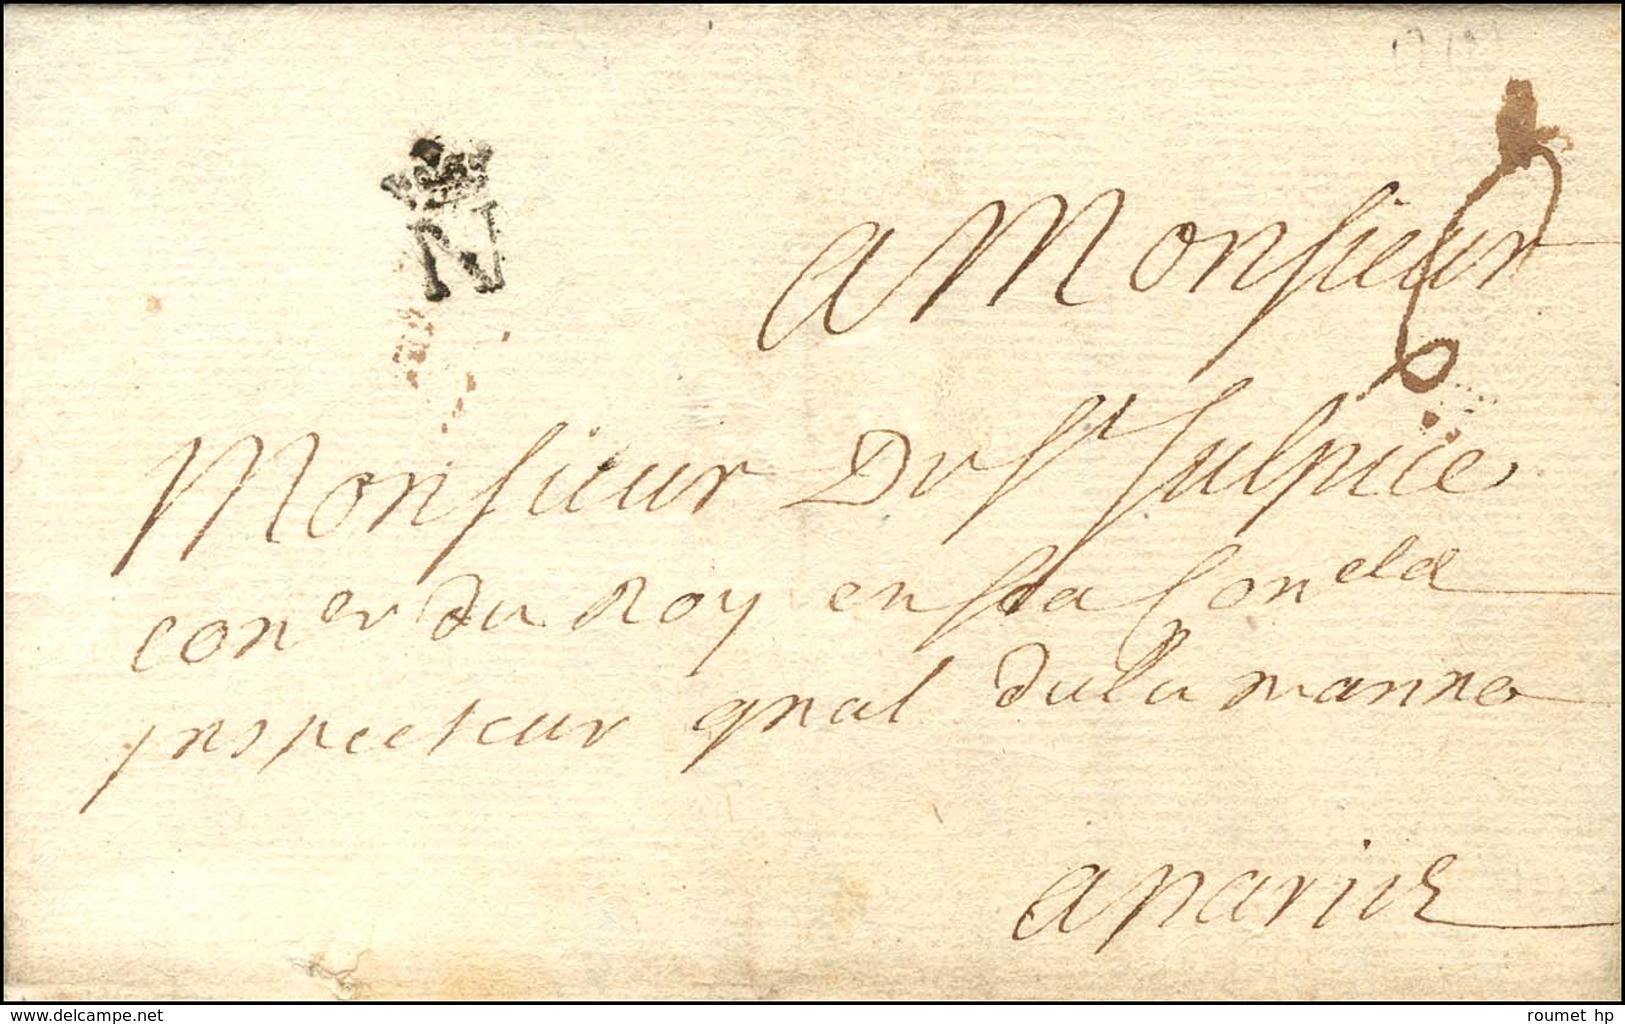 N
a Monsieur
Monsieur De St Sulpice
con.er du Roy en sa Con
inspecteur gnal de la marine
a paris
www.delcampe.net
roumet hp